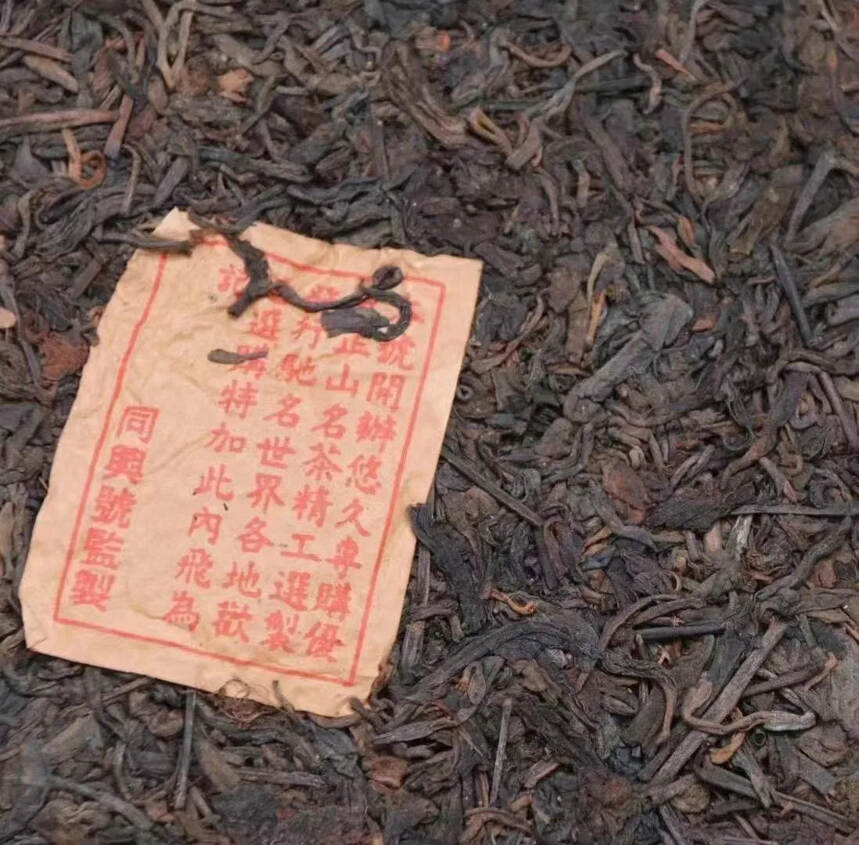 號開辦悠久專購優
正山名茶精工選製
行馳名世界各地歡
選購特加此內飛為
記
同興號監製